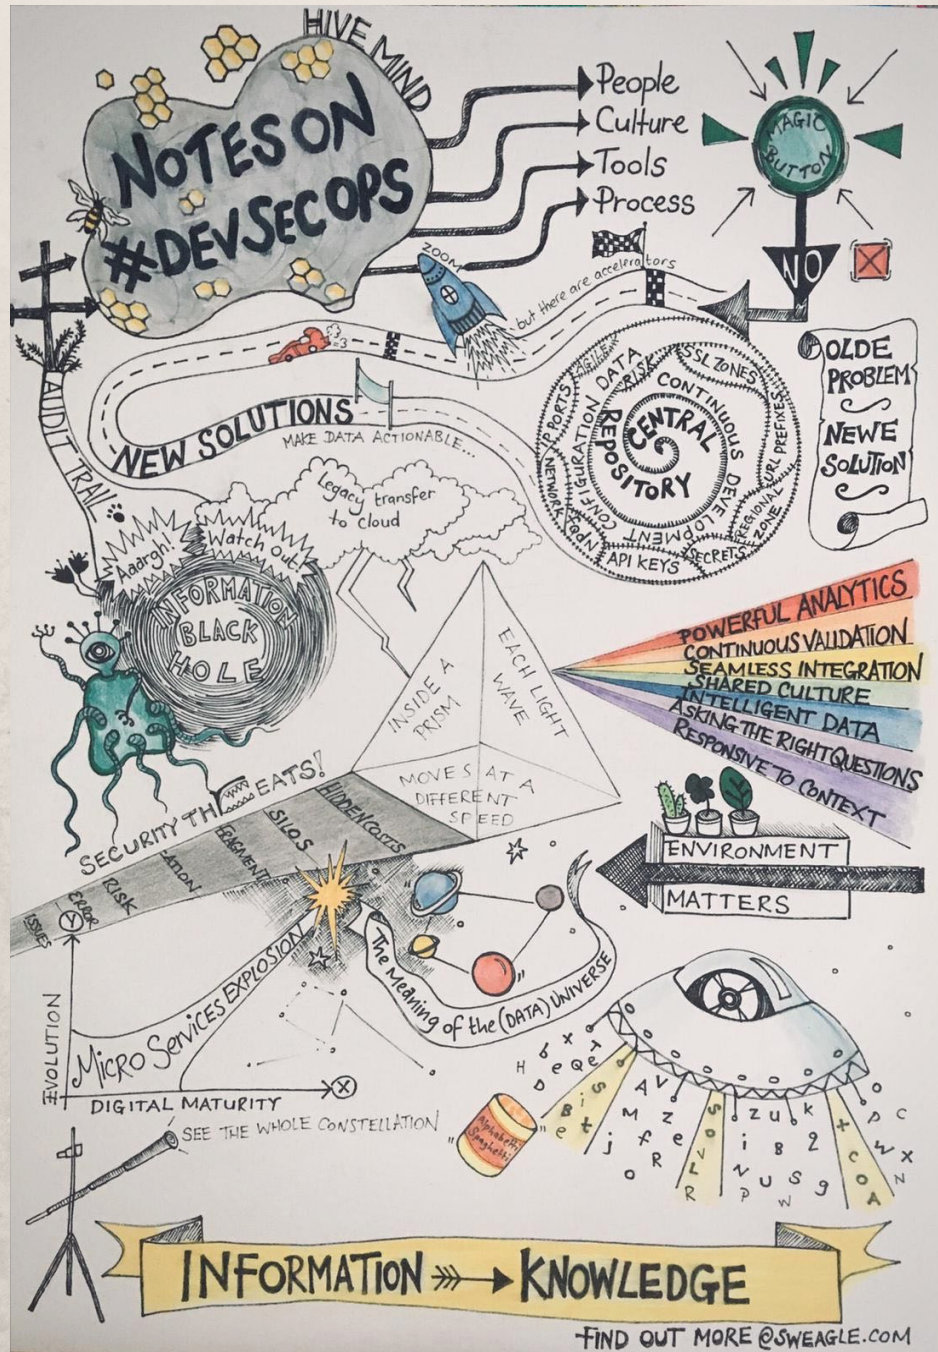 HIVE MIND
NOTES ON
#DEVSECOPS
People
Culture
Tools
Process
MAGIC
BUTTON
NO
ZOOM
but there are accelerators
OLDE
PROBLEM
NEWE
SOLUTION
NEW SOLUTIONS
MAKE DATA ACTIONABLE...
AUDIT TRAIL
CENTRAL
REPOSITORY
CONTINUOUS DEVELOPMENT
CONFIGURATION DATA
RISK
SSL ZONES
URL PREFIXES
REGIONAL
ZONE
SECRETS
API KEYS
NETWORK
Legacy transfer
to cloud
Aaargh!
Watch out!
INFORMATION
BLACK
HOLE
INSIDE A
PRISM
EACH LIGHT
WAVE
MOVES AT A
DIFFERENT
SPEED
POWERFUL ANALYTICS
CONTINUOUS VALIDATION
SEAMLESS INTEGRATION
SHARED CULTURE
INTELLIGENT DATA
ASKING THE RIGHT QUESTIONS
RESPONSIVE TO CONTEXT
SECURITY THREATS!
HIDDEN COSTS
SILOS
FRAGMENT
ATION
RISK
ERROR
ISSUES
ENVIRONMENT
MATTERS
Y
EVOLUTION
MICRO SERVICES EXPLOSION
DIGITAL MATURITY
X
The Meaning of the (DATA) UNIVERSE
SEE THE WHOLE CONSTELLATION
"Alphabetti
Spaghetti"
INFORMATION
KNOWLEDGE
FIND OUT MORE @SWEAGLE.COM